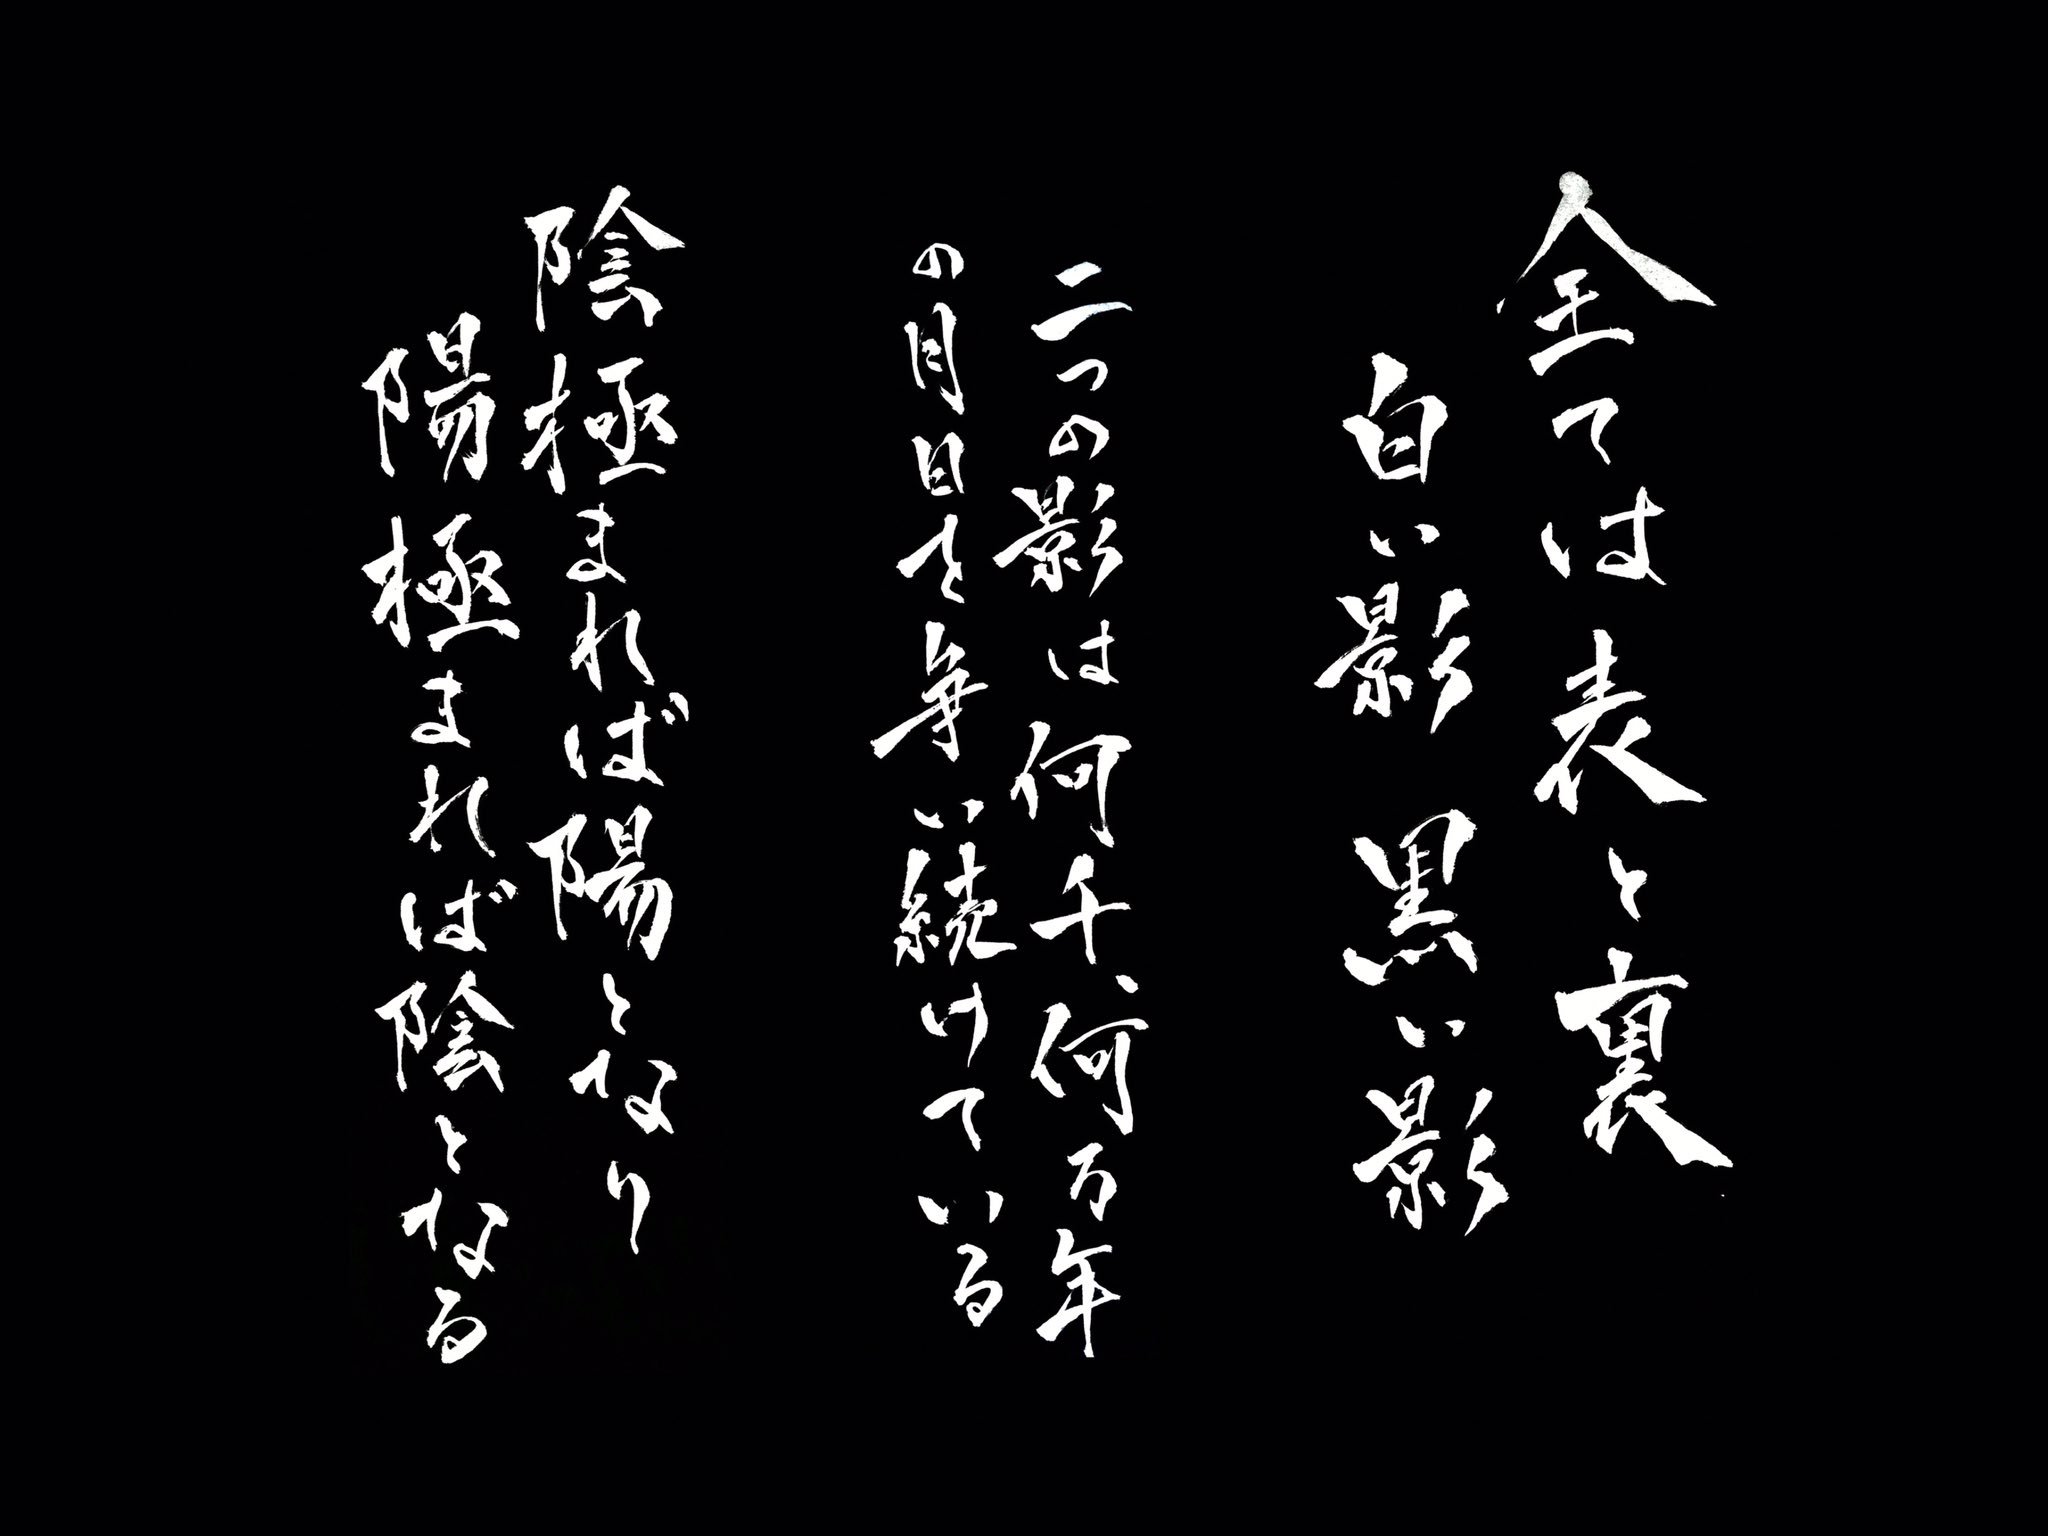 全ては表と裏
白い影 黒い影
二つの影は何千、何万年
の月日を争い続けている
陰極まれば陽となり
陽極まれば陰となる